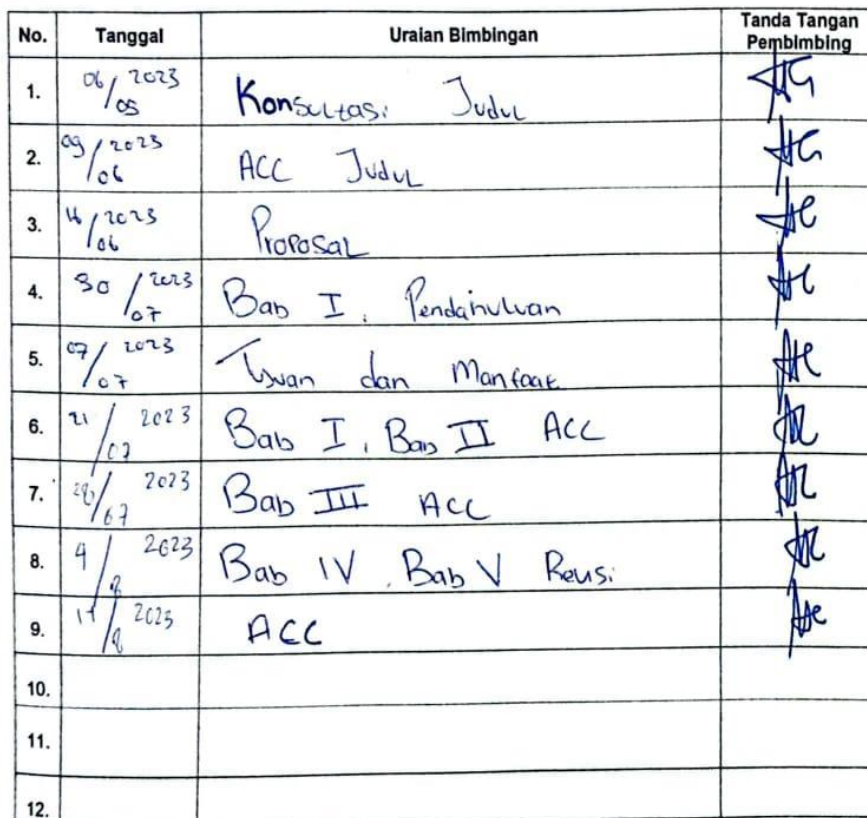 No. Tanggal Uraian Bimbingan Tanda Tangan Pembimbing
1. 06/05 2023 Konsultasi Judul
2. 09/06 2023 ACC Judul
3. 16/06 2023 Proposal
4. 30/07 2023 Bab I, Pendahuluan
5. 07/07 2023 Tujuan dan Manfaat
6. 21/07 2023 Bab I, Bab II ACC
7. 28/07 2023 Bab III ACC
8. 4/8 2023 Bab IV, Bab V Revisi
9. 2023 ACC
10.
11.
12.